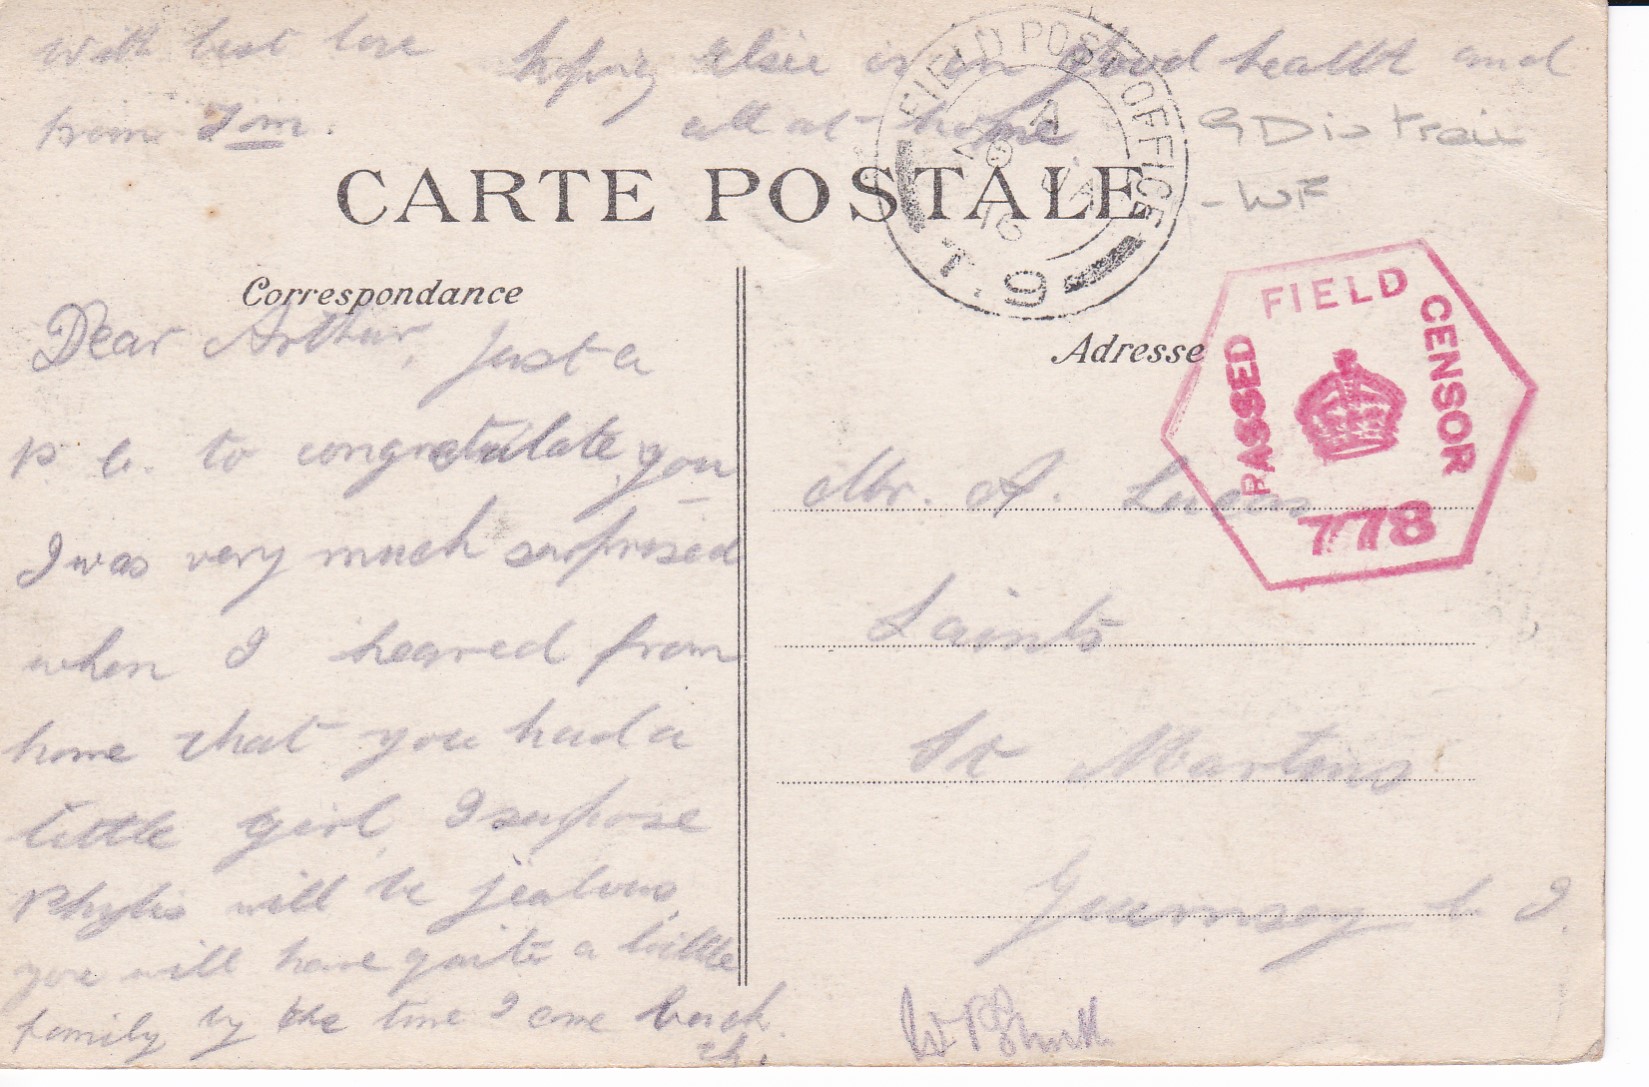 With best love hoping Elsie is in good health and
from Tom. all at home
9 Div train
- WF
FIELD POST OFFICE
A
T.9
CARTE POSTALE
Correspondance
Adresse
PASSED FIELD CENSOR
778
Dear Arthur, Just a
P. C. to congratulate you
I was very much surprised
when I heared from
home that you had a
little girl, I supose
Phylis will be jealous,
you will have quite a little
family by the time I come back.
Mr. A. Lucas
Saints
St Martins
Guernsey C. I.